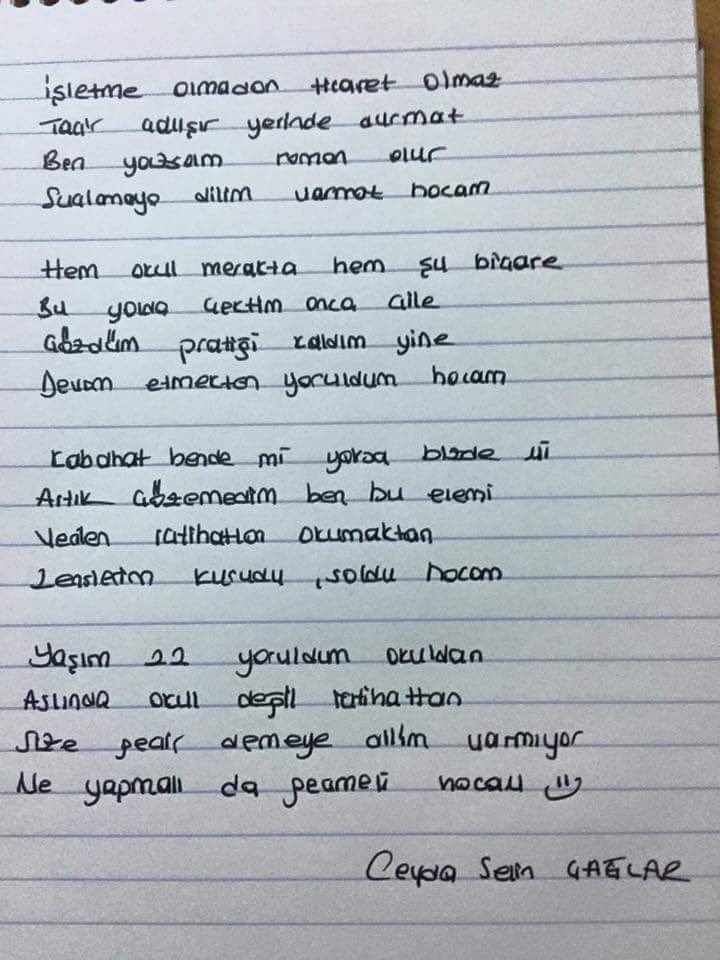 İşletme olmadan ticaret olmaz
Tacir yerinde durmaz
Ben yazsam roman olur
Sualamaya dilim varmaz hocam
Hem okul merakta hem şu biçare
Bu yolda çektim onca çile
Çözdüm pratiği kaldım yine
Devam etmekten yoruldum hocam
Kabahat bende mi yoksa bizde mi
Artık çözemedim ben bu elemi
Verilen içtihatları okumaktan
kurudu, soldu hocam
Yaşım 22 yoruldum okuldan
Aslında okul değil içtihattan
Size geçir demeye dilim varmıyor
Ne yapmalı da geçmeli hocam
Ceyda Selin ÇAĞLAR